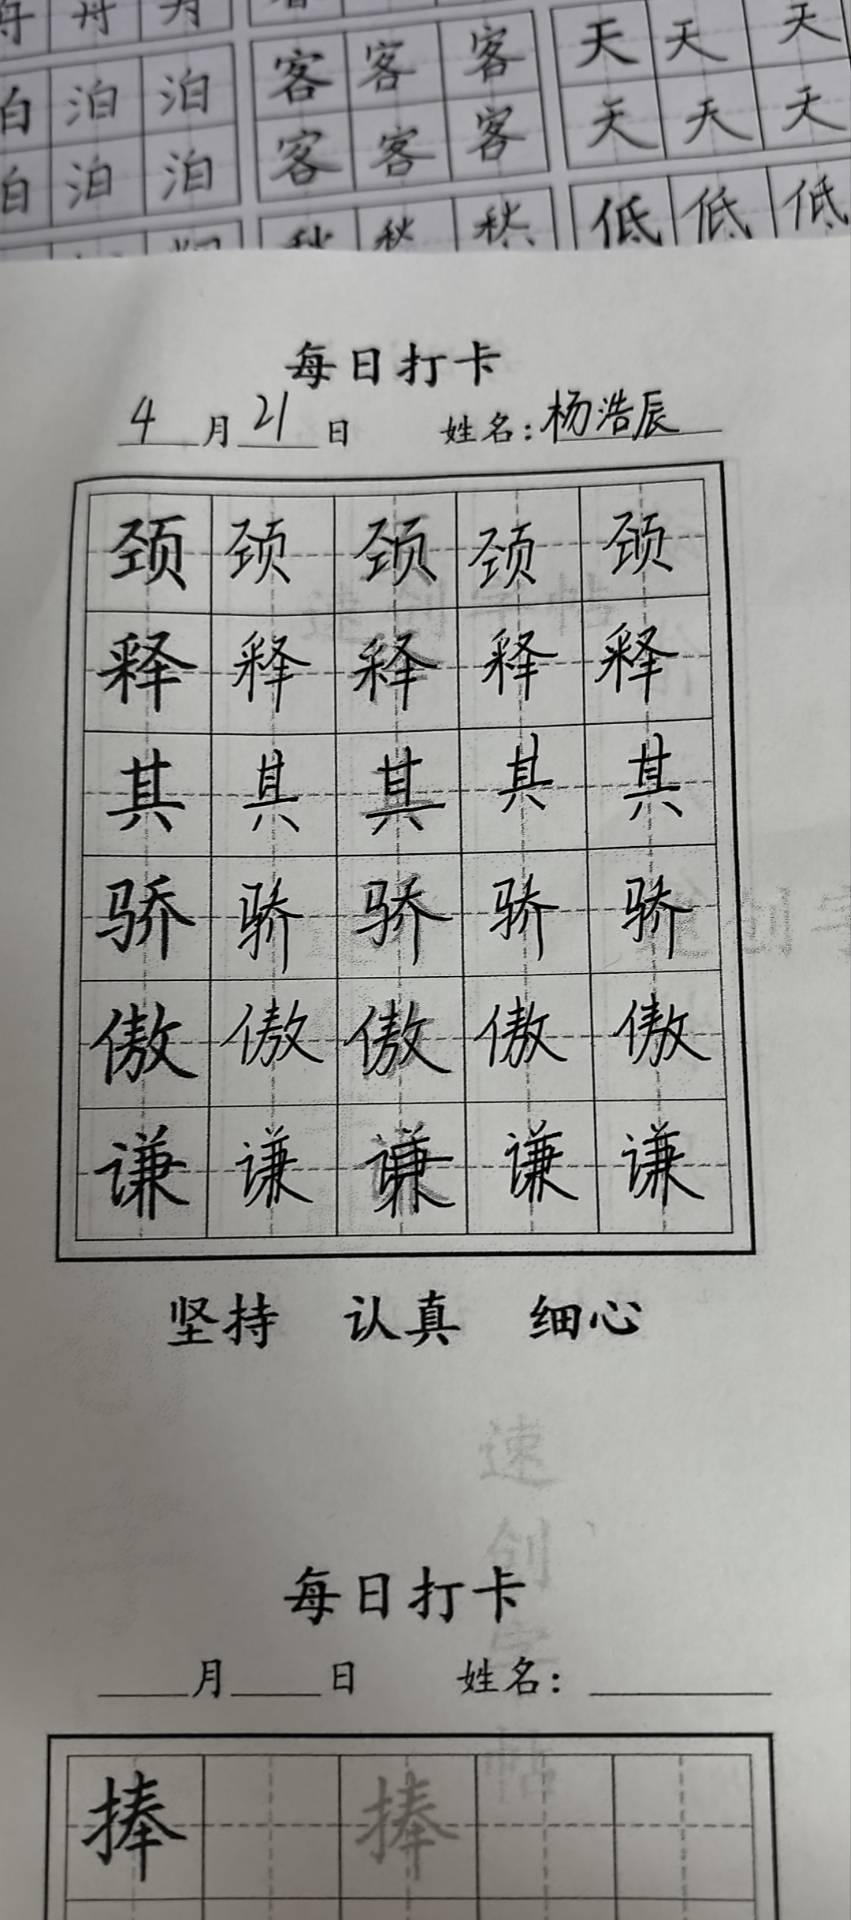 泊 泊 泊 客 客 客 天 天 天
泊 泊 泊 客 客 客 天 天 天
秋 秋 秋 低 低 低
每日打卡
4月21日 姓名:杨浩辰
颈 颈 颈 颈 颈
释 释 释 释 释
其 其 其 其 其
骄 骄 骄 骄 骄
傲 傲 傲 傲 傲
谦 谦 谦 谦 谦
坚持 认真 细心
速创字帖
每日打卡
月 日 姓名:
捧 捧